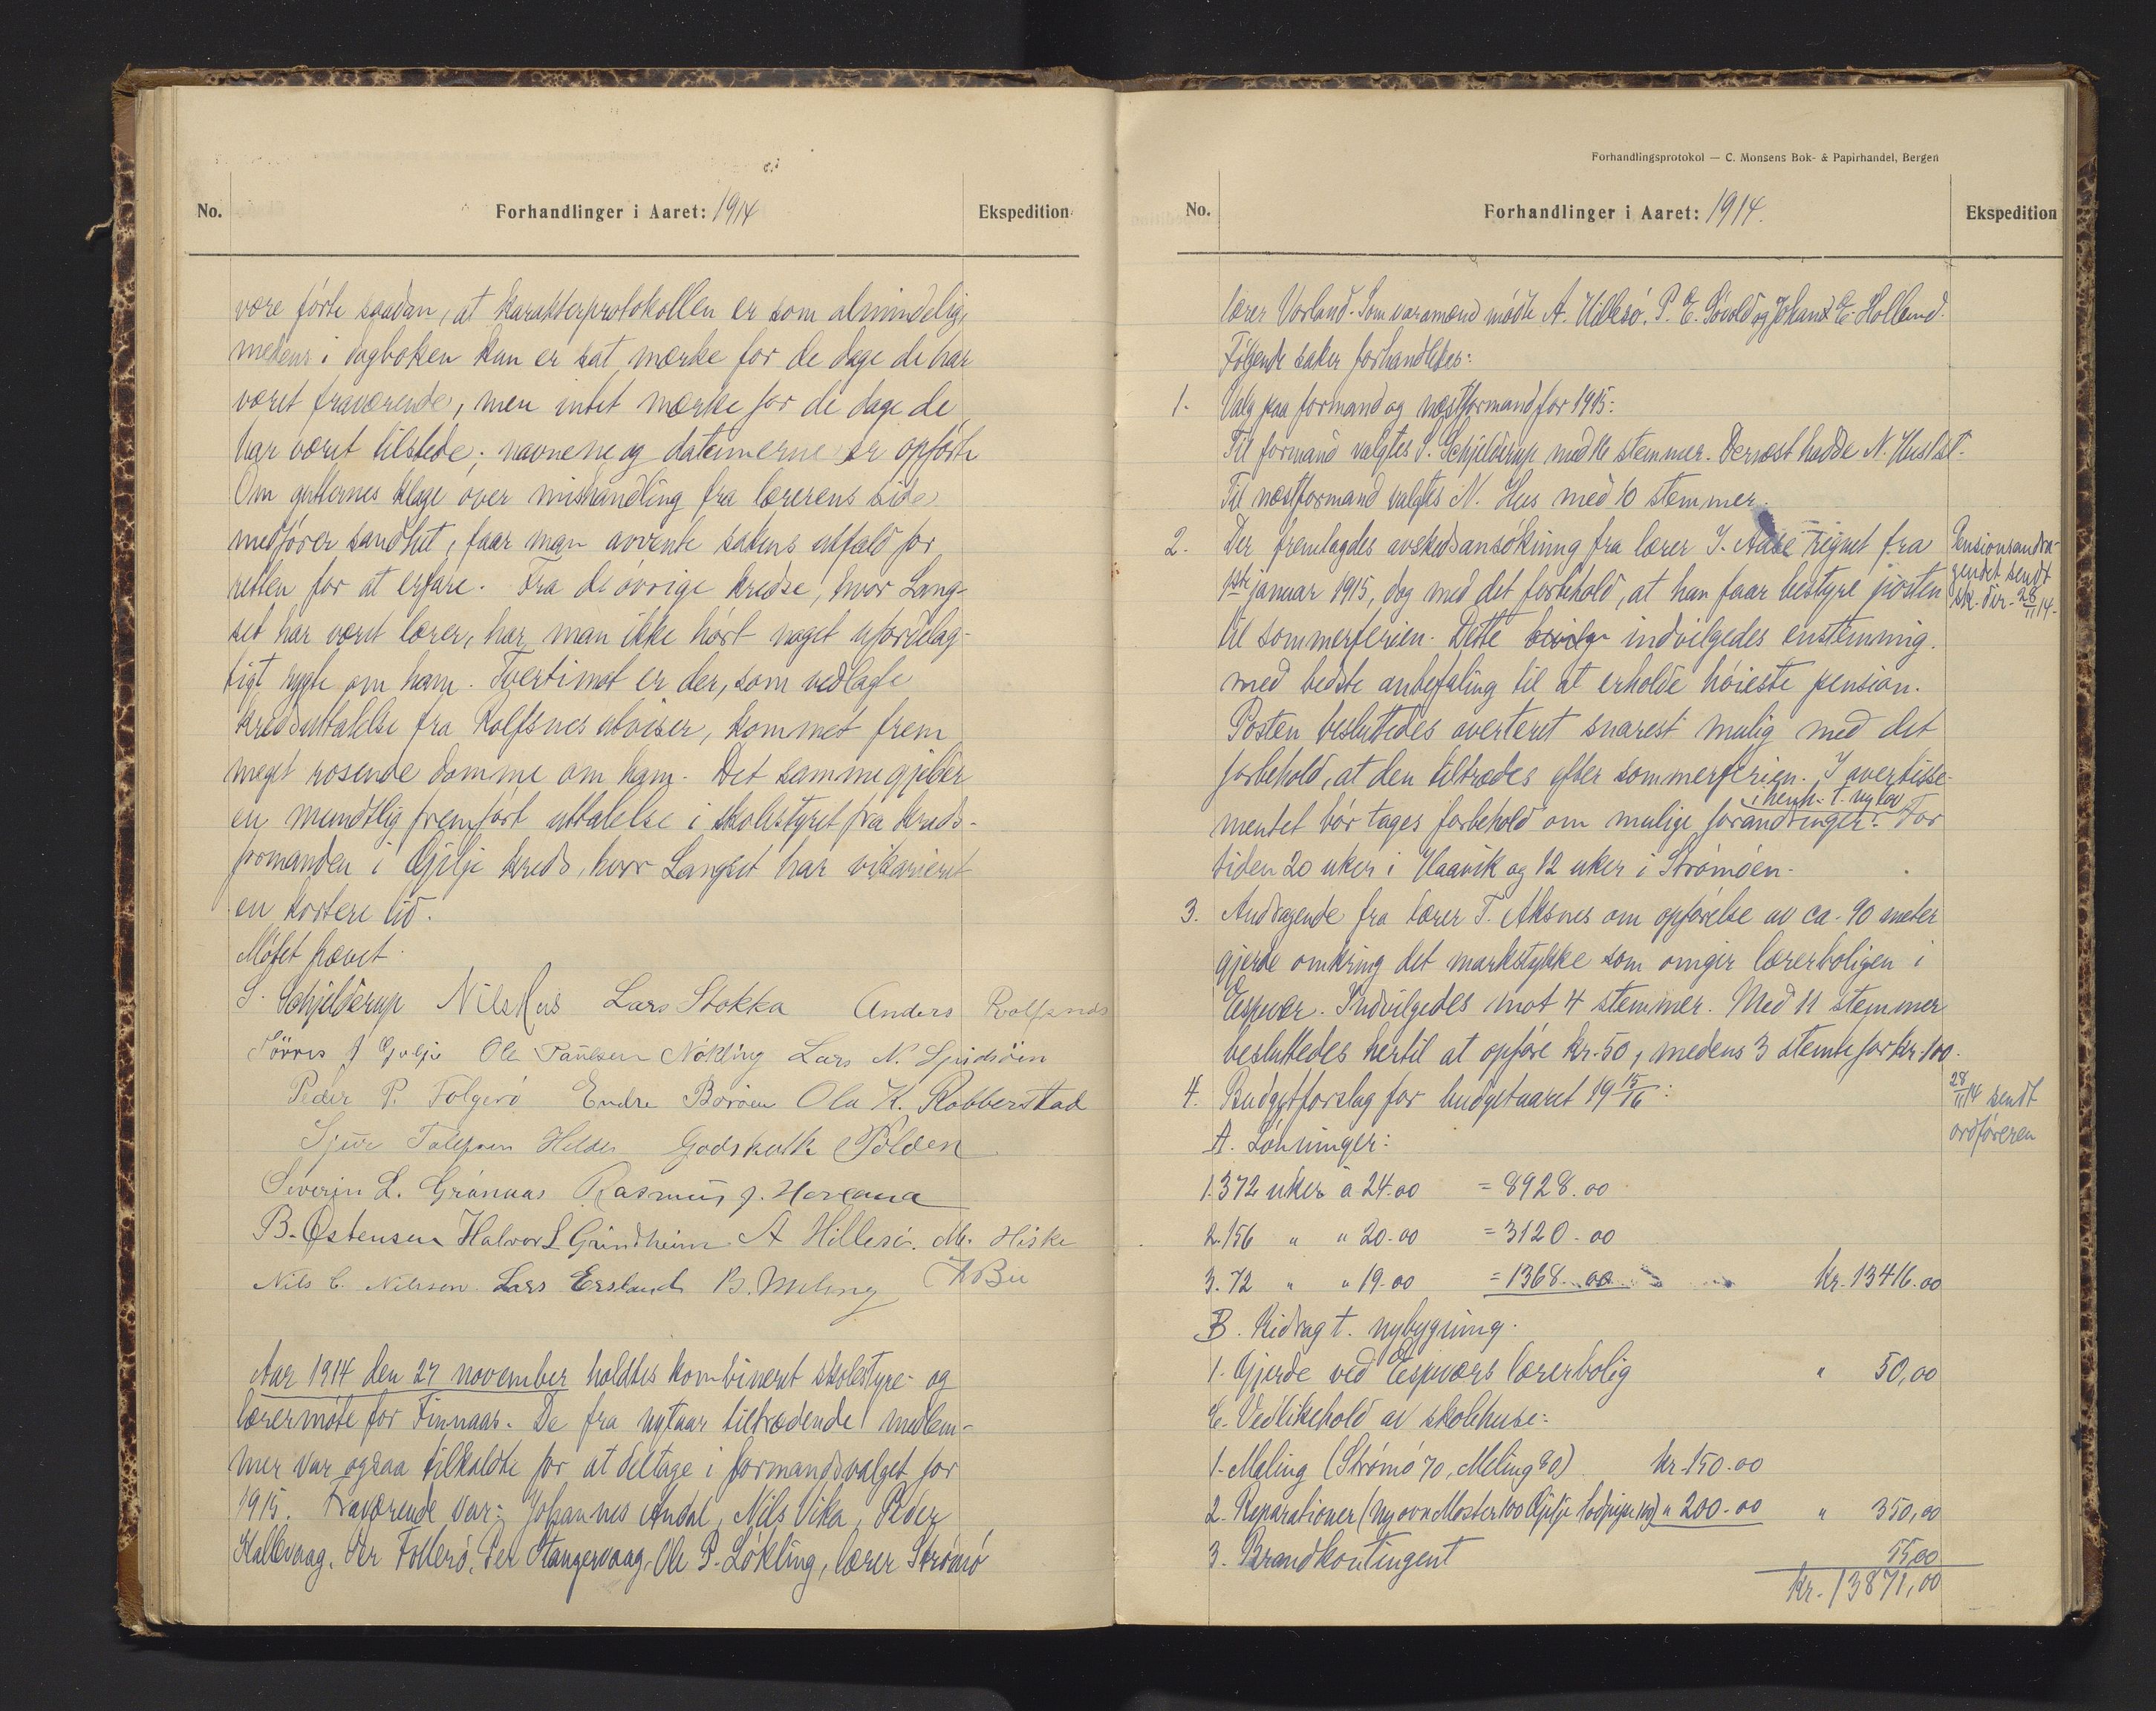 No.
Forhandlinger i Aaret: 1914
Ekspedition
være førte saadan, at karakterprotokollen er som almindelig,
medens i dagboken kun er sat mærke for de dage de har
været fraværende, men intet mærke for de dage de
har været tilstede; navnene og datumerne er opførte
Om gutternes klage over mishandling fra lærerens side
medfører sandhet, faar man avvente sakens utfald for
retten for at erfare. Fra de øvrige kredse, hvor Lang-
set har været lærer, har man ikke hørt noget ufordelag-
tigt rygte om ham. Tvertimot er der, som vedlagte
kredsuttalelse fra Rolfsnes utviser, kommet frem
meget rosende domme om ham. Det samme gjelder
en mundtlig fremført uttalelse i skolestyret fra kreds-
formanden i Gjilje kreds, hvor Langset har vikarieret
en kortere tid.
Møtet hævet.
S. Schjelderup Nils Hus Lars Stokka Anders Rolfsnes
Sørres J Gjilje Ole Paulsen Nøkling Lars N. Spidsøen
Peder P. Folgerø Endre Børøen Ola K. Robberstad
Sjur Tollefsen Helder Godskalk Polden
Severin L. Grønnaas Rasmus J. Hovland
B. Østensen Halvor L Grindheim A Hillesø. M. Hiske
Nils C. Nilssen Lars Ersland B. Meling K Bu
Aar 1914 den 27 november holdtes kombineret skolestyre- og
lærermøte for Finnaas. De fra nytaar tiltrædende medlem-
mer var ogsaa tilkaldte for at deltage i formandsvalget for
1915. Fraværende var: Johannes Andal, Nils Vika, Peder
Kallevaag, Per Follerø, Per Stangervaag, Ole P. Løkling, lærer Strømø
Forhandlingsprotokol — C. Monsens Bok- & Papirhandel, Bergen
No.
Forhandlinger i Aaret: 1914.
Ekspedition
lærer Vorland. Som varamænd møtte A. Hillesø, P. E. Søvold og Johan E. Holland.
Følgende saker forhandledes:
1. Valg paa formand og næstformand for 1915:
Til formand valgtes S. Schjelderup med 16 stemmer. Dernæst hadde N. Hus 1 st.
Til næstformand valgtes N. Hus med 10 stemmer.
2. Der fremlagdes avskedsansøkning fra lærer J. Aase regnet fra
1ste januar 1915, dog med det forbehold, at han faar bestyre posten
til sommerferien. Dette indvilgedes enstemmig.
med bedste anbefaling til at erholde høieste pension.
Pensionsandra-
gendet sendt
sk. dir. 28/11 14.
Posten besluttedes averteret snarest mulig med det
forbehold, at den tiltrædes efter sommerferien. I avertisse-
mentet bør tages forbehold om mulige forandringer i henh. t. ny lov. For
tiden 20 uker i Haavik og 12 uker i Strømøen.
3. Andragende fra lærer T. Aksnes om opførelse av ca. 90 meter
gjerde omkring det markstykke som omgir lærerboligen i
Espevær. Indvilgedes mot 4 stemmer. Med 11 stemmer
besluttedes hertil at opføre kr. 50, medens 3 stemte for kr. 100.
4. Budgetforslag for budgetaaret 19 15/16:
28/11 14 sendt
ordføreren
A. Lønninger:
1. 372 uker à 24.00 = 8928.00
2. 156 " " 20.00 = 3120.00
3. 72 " " 19.00 = 1368.00 kr. 13416.00
B. Bidrag t. nybygning.
1. Gjerde ved Espeværs lærerbolig " 50,00
C. Vedlikehold av skolehuse:
1. Maling (Strømø 70, Meling 80) kr. 150.00
2. Reparationer (ny ovn Moster 100 Gjilje 100) " 200.00 " 350,00
3. Brandkontingent 55,00
kr. 13871,00